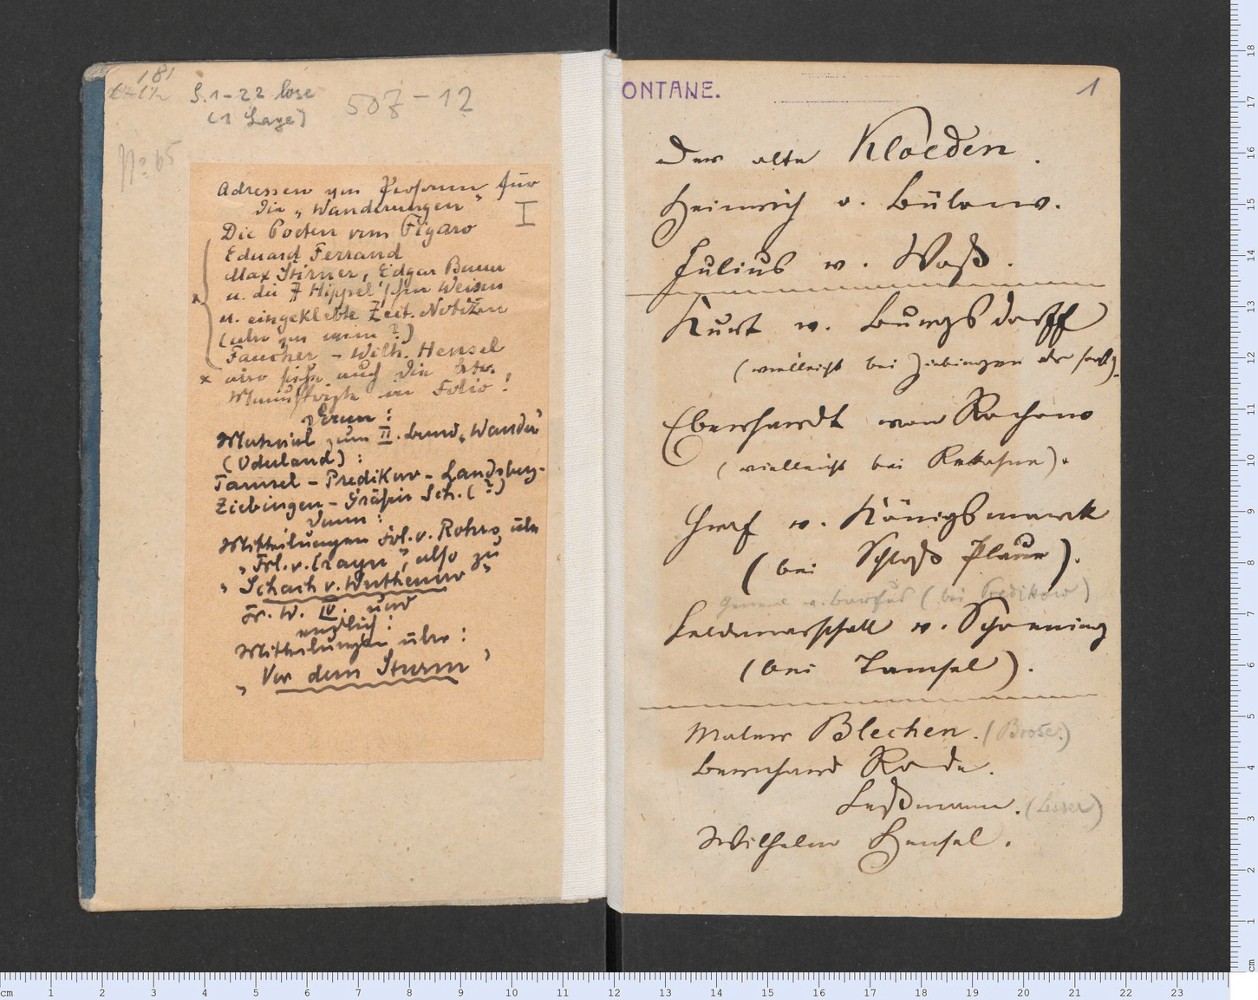 181
S. 1-22 lose
(1 Lage)
507-12
No 65
Adressen von Personen für
die „Wanderungen“
I
Die Poeten vom Figaro
Eduard Ferrand
Max Stirner, Edgar Bauer
u. die 7 Hippel'schen Weisen
u. eingeklebte Zeit. Notizen
(über
Faucher - Wilh. Hensel
x also siehe auch die betr.
Manuskripte in Folio!
Ferner:
Material zum II. Band „Wander
(Oderland):
Tamsel - Predikow - Landsberg-
Ziebingen - Gräfin Sch. (?)
Dann:
Mittheilungen Frl. v. Rohrs über
„Frl. v. Crayn“, also zu
„Schach v. Wuthenow“
Fr. W. IV. und
endlich:
Mittheilungen über:
„Vor dem Sturm“
ONTANE.
1
Der alte Kloeden.
Heinrich v. Bülow.
Julius v. Voß.
Kurt v. Burgsdorff
(vielleicht bei Ziebingen
Eberhardt von Rochow
(vielleicht bei Rekahne).
Graf v. Königsmarck
(bei Schloß Plaue).
General v. Barfus (bei Predikow)
Feldmarschall v. Schoening
(bei Tamsel).
Maler Blechen. (Brose.)
Bernhard Rode.
Leßmann. (Lesser)
Wilhelm Hensel.